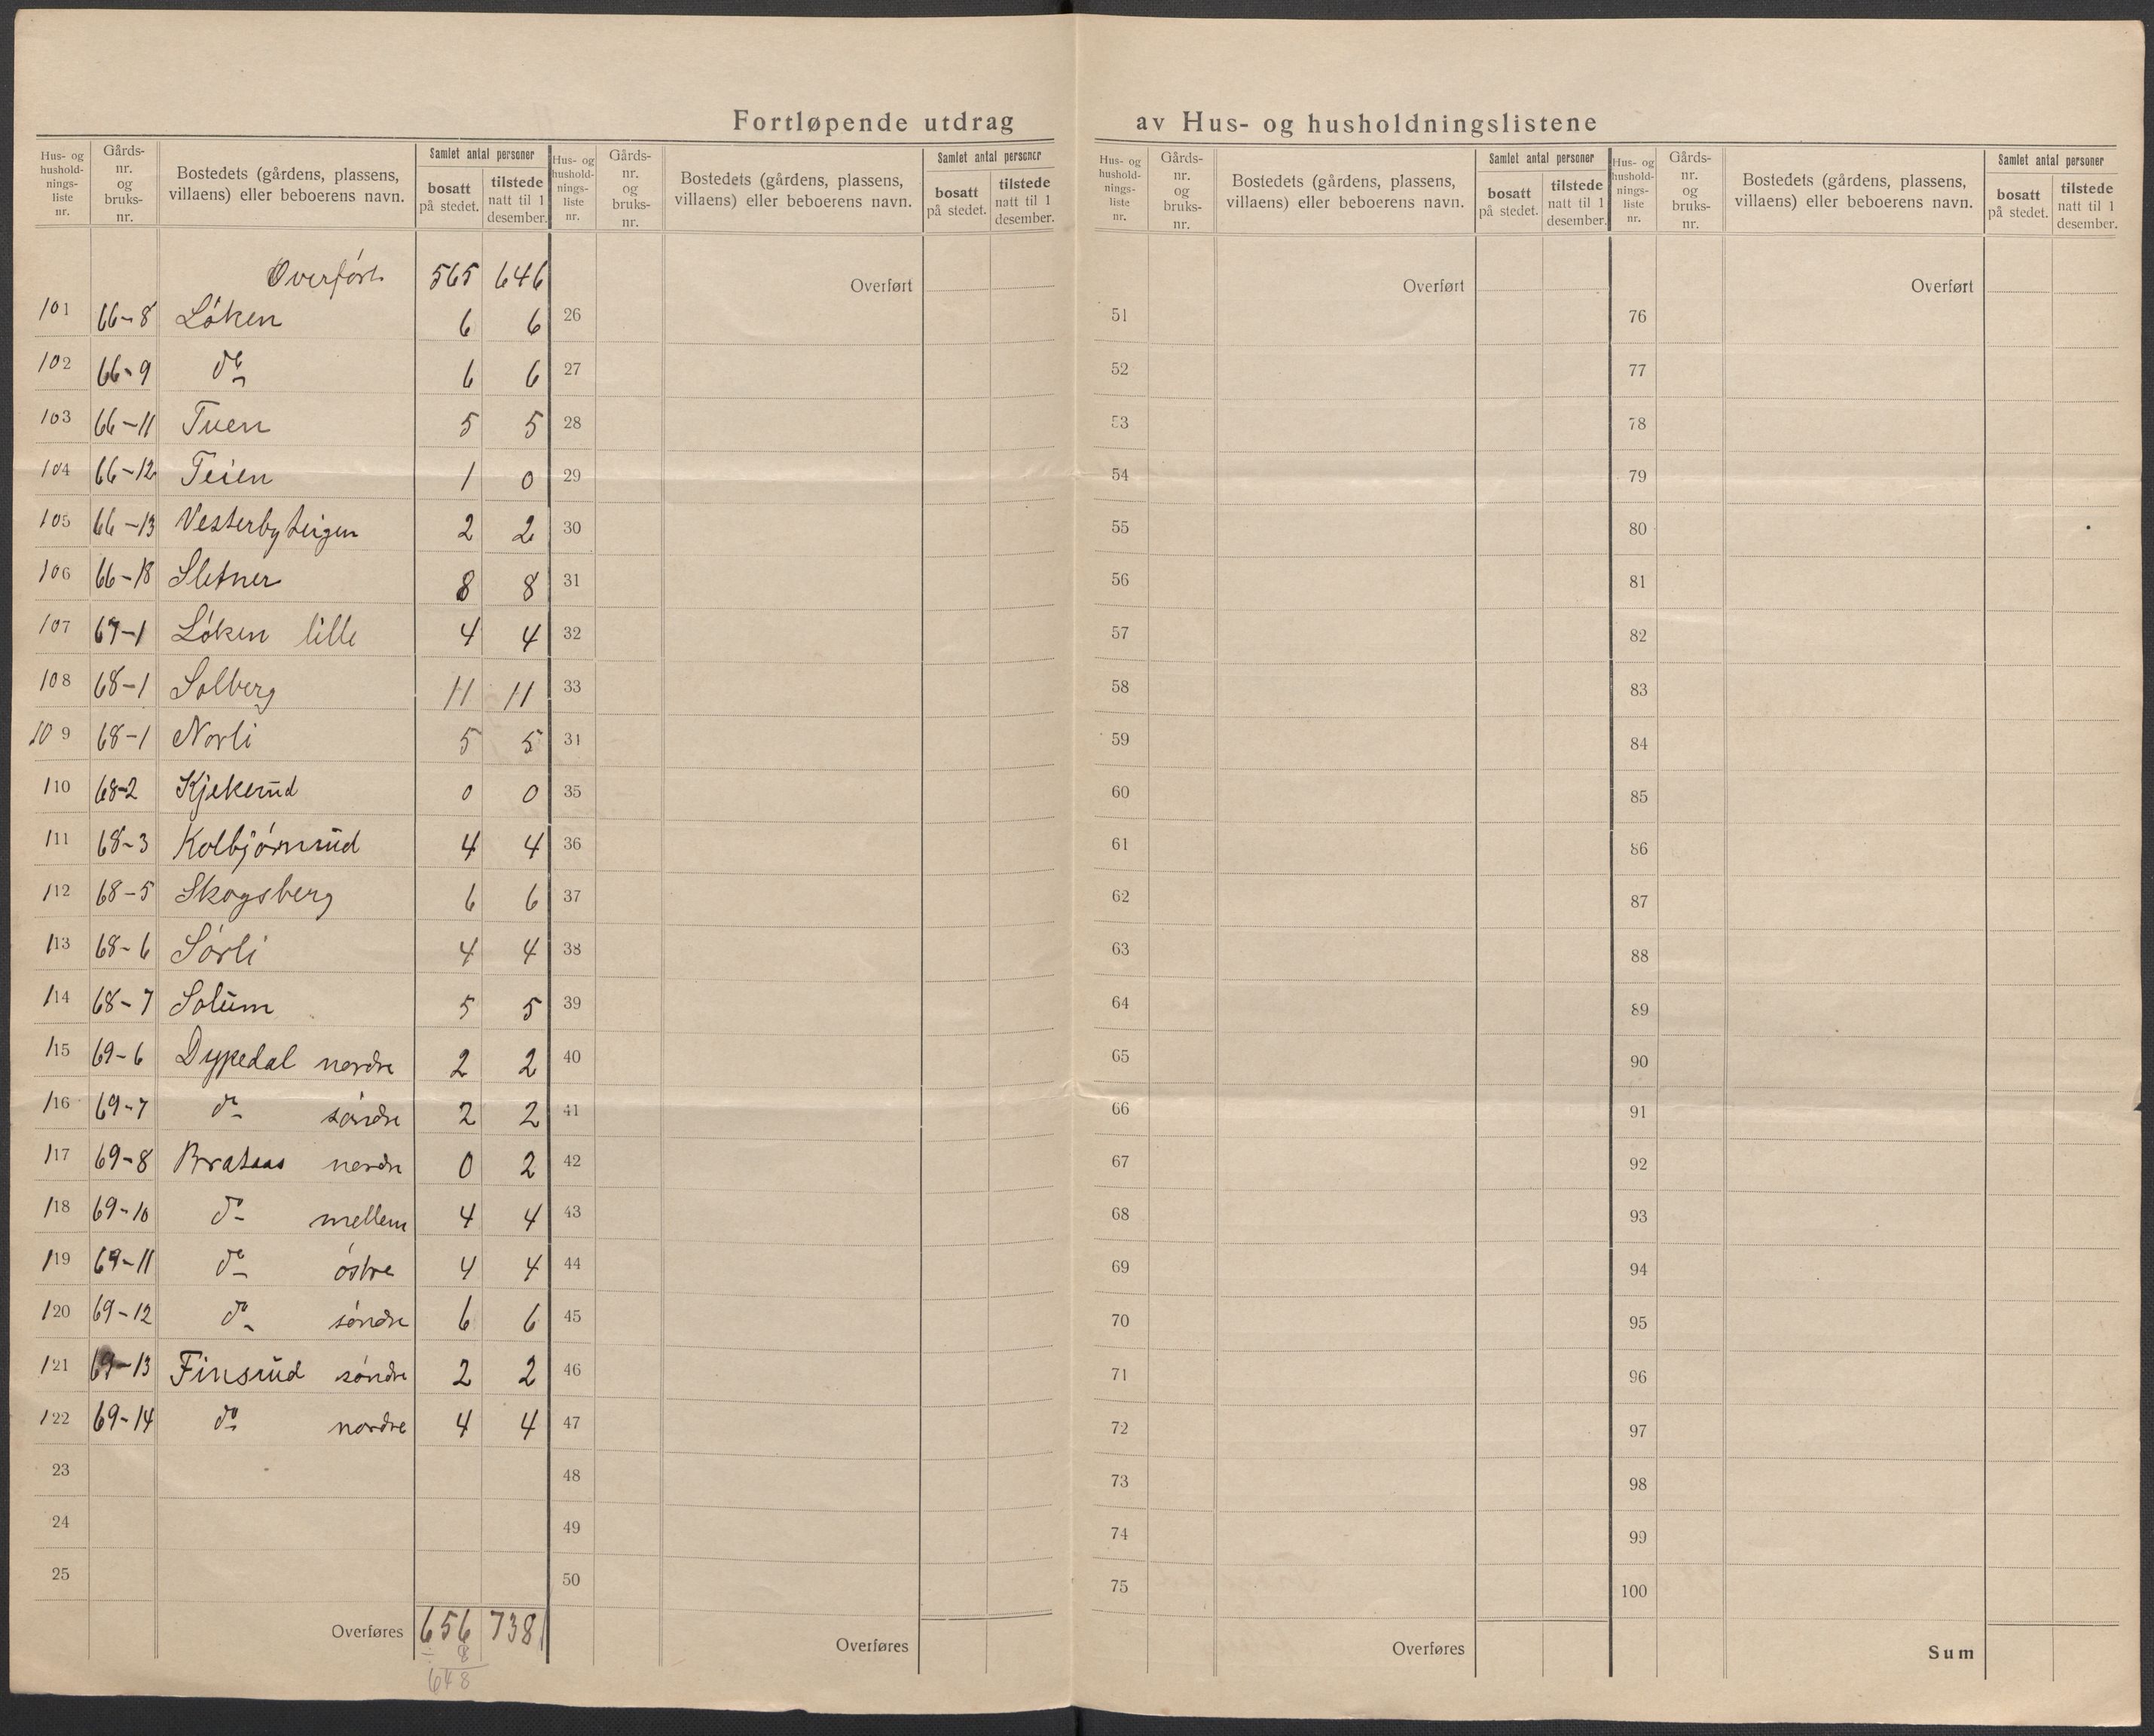 Fortløpende utdrag av Hus- og husholdningslistene
Hus- og hushold-nings-liste nr. Gårds-nr. og bruks-nr. Bostedets (gårdens, plassens, villaens) eller beboerens navn. Samlet antal personer bosatt på stedet. tilstede natt til 1 desember.
Hus- og hushold-nings-liste nr. Gårds-nr. og bruks-nr. Bostedets (gårdens, plassens, villaens) eller beboerens navn. Samlet antal personer bosatt på stedet. tilstede natt til 1 desember.
Hus- og hushold-nings-liste nr. Gårds-nr. og bruks-nr. Bostedets (gårdens, plassens, villaens) eller beboerens navn. Samlet antal personer bosatt på stedet. tilstede natt til 1 desember.
Hus- og hushold-nings-liste nr. Gårds-nr. og bruks-nr. Bostedets (gårdens, plassens, villaens) eller beboerens navn. Samlet antal personer bosatt på stedet. tilstede natt til 1 desember.
Overført 565 646 Overført Overført Overført
101 66-8 Løken 6 6 26 51 76
102 66-9 do 6 6 27 52 77
103 66-11 Tuen 5 5 28 53 78
104 66-12 Teien 1 0 29 54 79
105 66-13 Vesterbyteigen 2 2 30 55 80
106 66-18 Sletner 8 8 31 56 81
107 67-1 Løken lille 4 4 32 57 82
108 68-1 Solberg 11 11 33 58 83
109 68-1 Norli 5 5 34 59 84
110 68-2 Kjekerud 0 0 35 60 85
111 68-3 Kolbjørnrud 4 4 36 61 86
112 68-5 Skogsberg 6 6 37 62 87
113 68-6 Sørli 4 4 38 63 88
114 68-7 Solum 5 5 39 64 89
115 69-6 Dypedal nordre 2 2 40 65 90
116 69-7 do søndre 2 2 41 66 91
117 69-8 Brataas nordre 0 2 42 67 92
118 69-10 do mellem 4 4 43 68 93
119 69-11 do østre 4 4 44 69 94
120 69-12 do søndre 6 6 45 70 95
121 69-13 Finsrud søndre 2 2 46 71 96
122 69-14 do nordre 4 4 47 72 97
23 48 73 98
24 49 74 99
25 50 75 100
Overføres 656 738 Overføres Overføres Sum
÷ 8
648